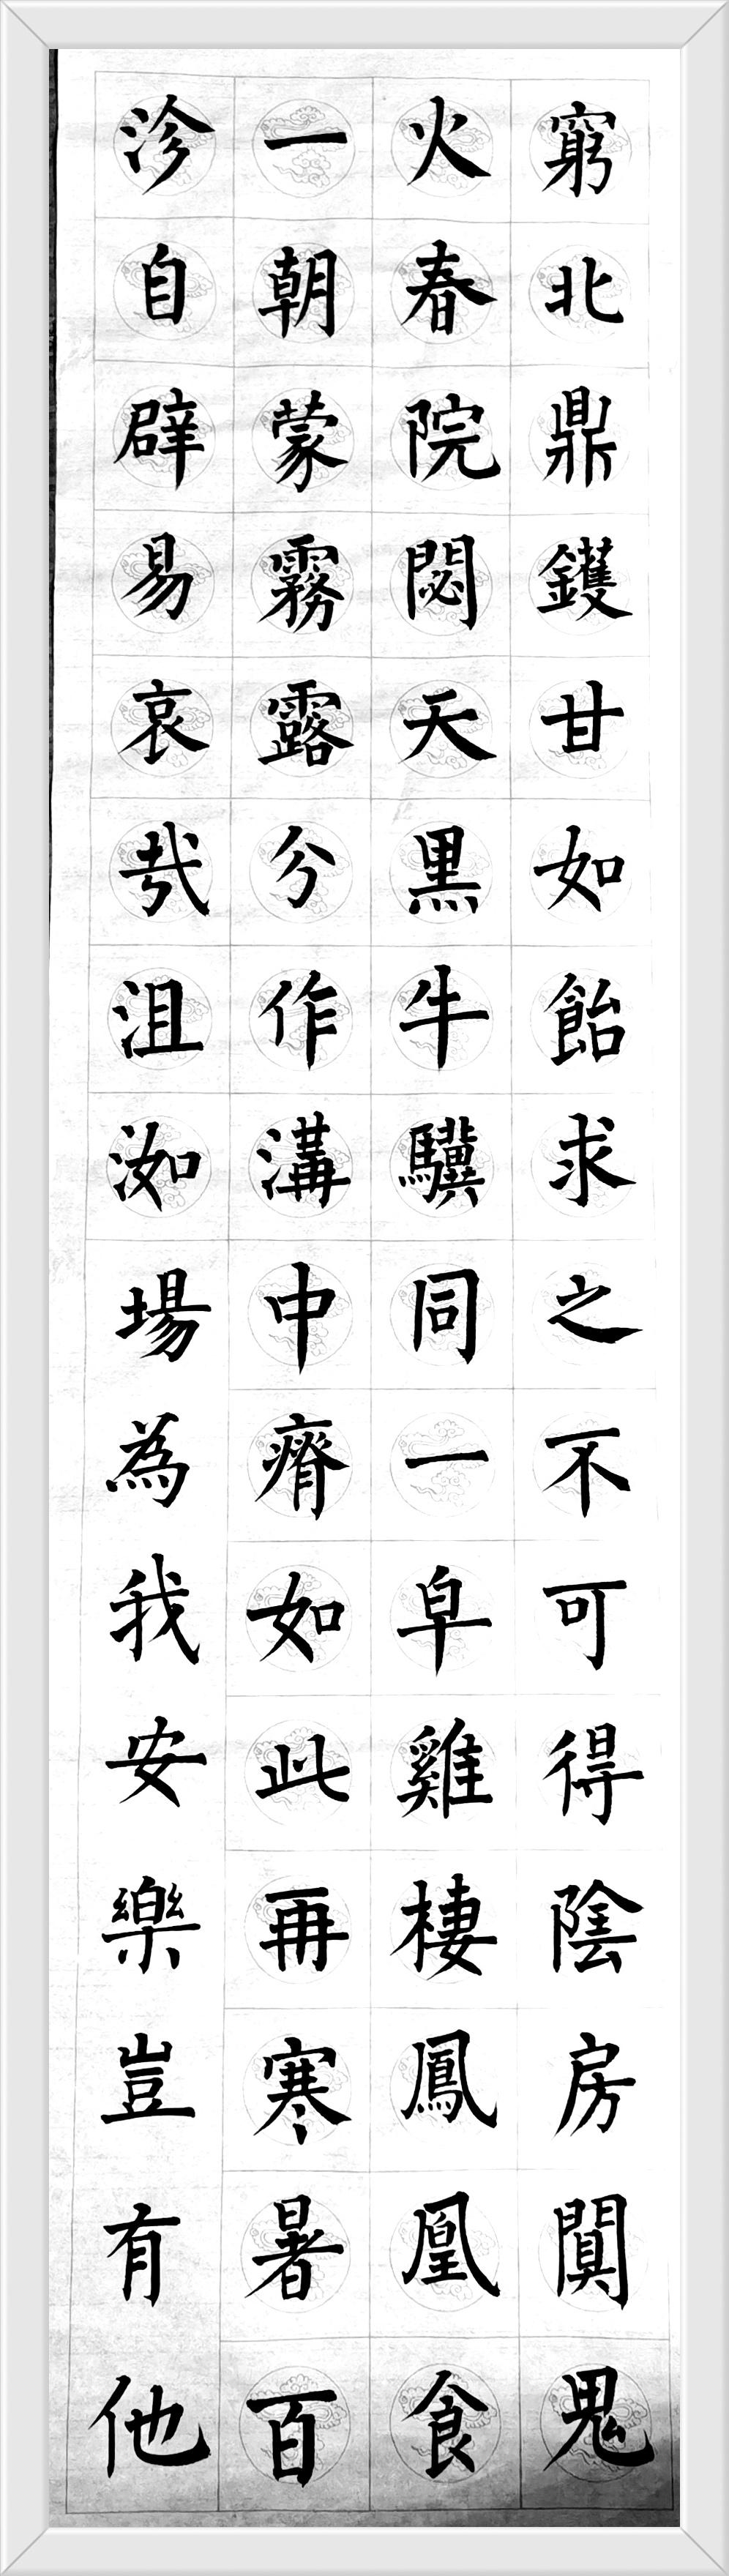 窮北鼎鑊甘如飴求之不可得陰房闃鬼
火春院閟天黑牛驥同一皁雞棲鳳凰食
一朝蒙霧露分作溝中瘠如此再寒暑百
沴自辟易哀哉沮洳場為我安樂豈有他